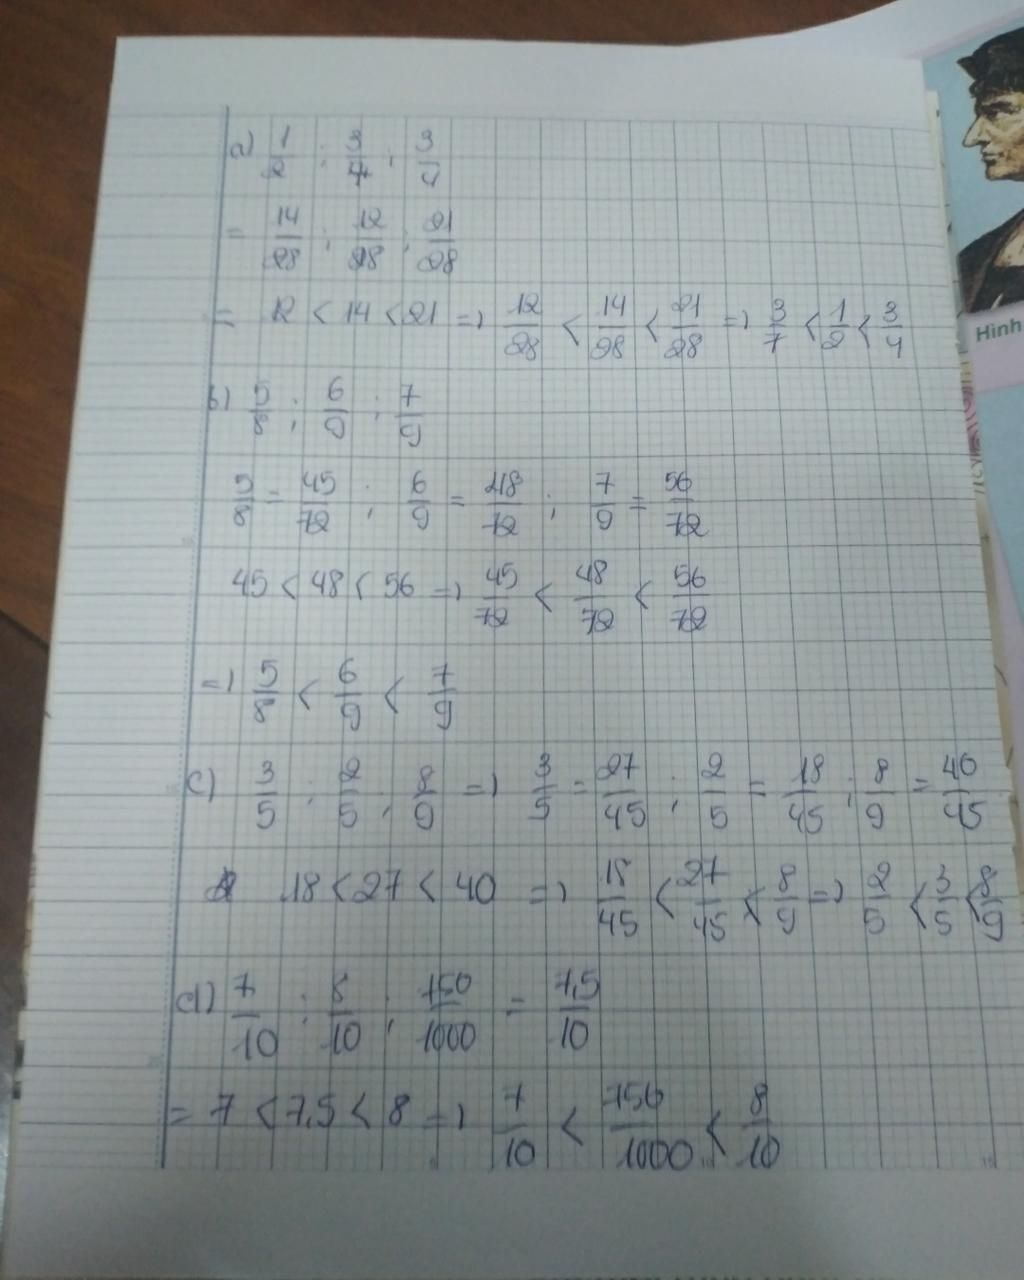 a) 1/2 ; 3/7 ; 3/4
= 14/28 ; 12/28 ; 21/28
= 12 < 14 < 21 => 12/28 < 14/28 < 21/28 => 3/7 < 1/2 < 3/4
Hinh
b) 5/8 ; 6/9 ; 7/9
5/8 = 45/72 ; 6/9 = 48/72 ; 7/9 = 56/72
45 < 48 < 56 => 45/72 < 48/72 < 56/72
=> 5/8 < 6/9 < 7/9
c) 3/5 ; 2/5 ; 8/9 => 3/5 = 27/45 ; 2/5 = 18/45 ; 8/9 = 40/45
18 < 27 < 40 => 18/45 < 27/45 < 8/9 => 2/5 < 3/5 < 8/9
d) 7/10 ; 8/10 ; 750/1000 = 7,5/10
= 7 < 7,5 < 8 => 7/10 < 750/1000 < 8/10